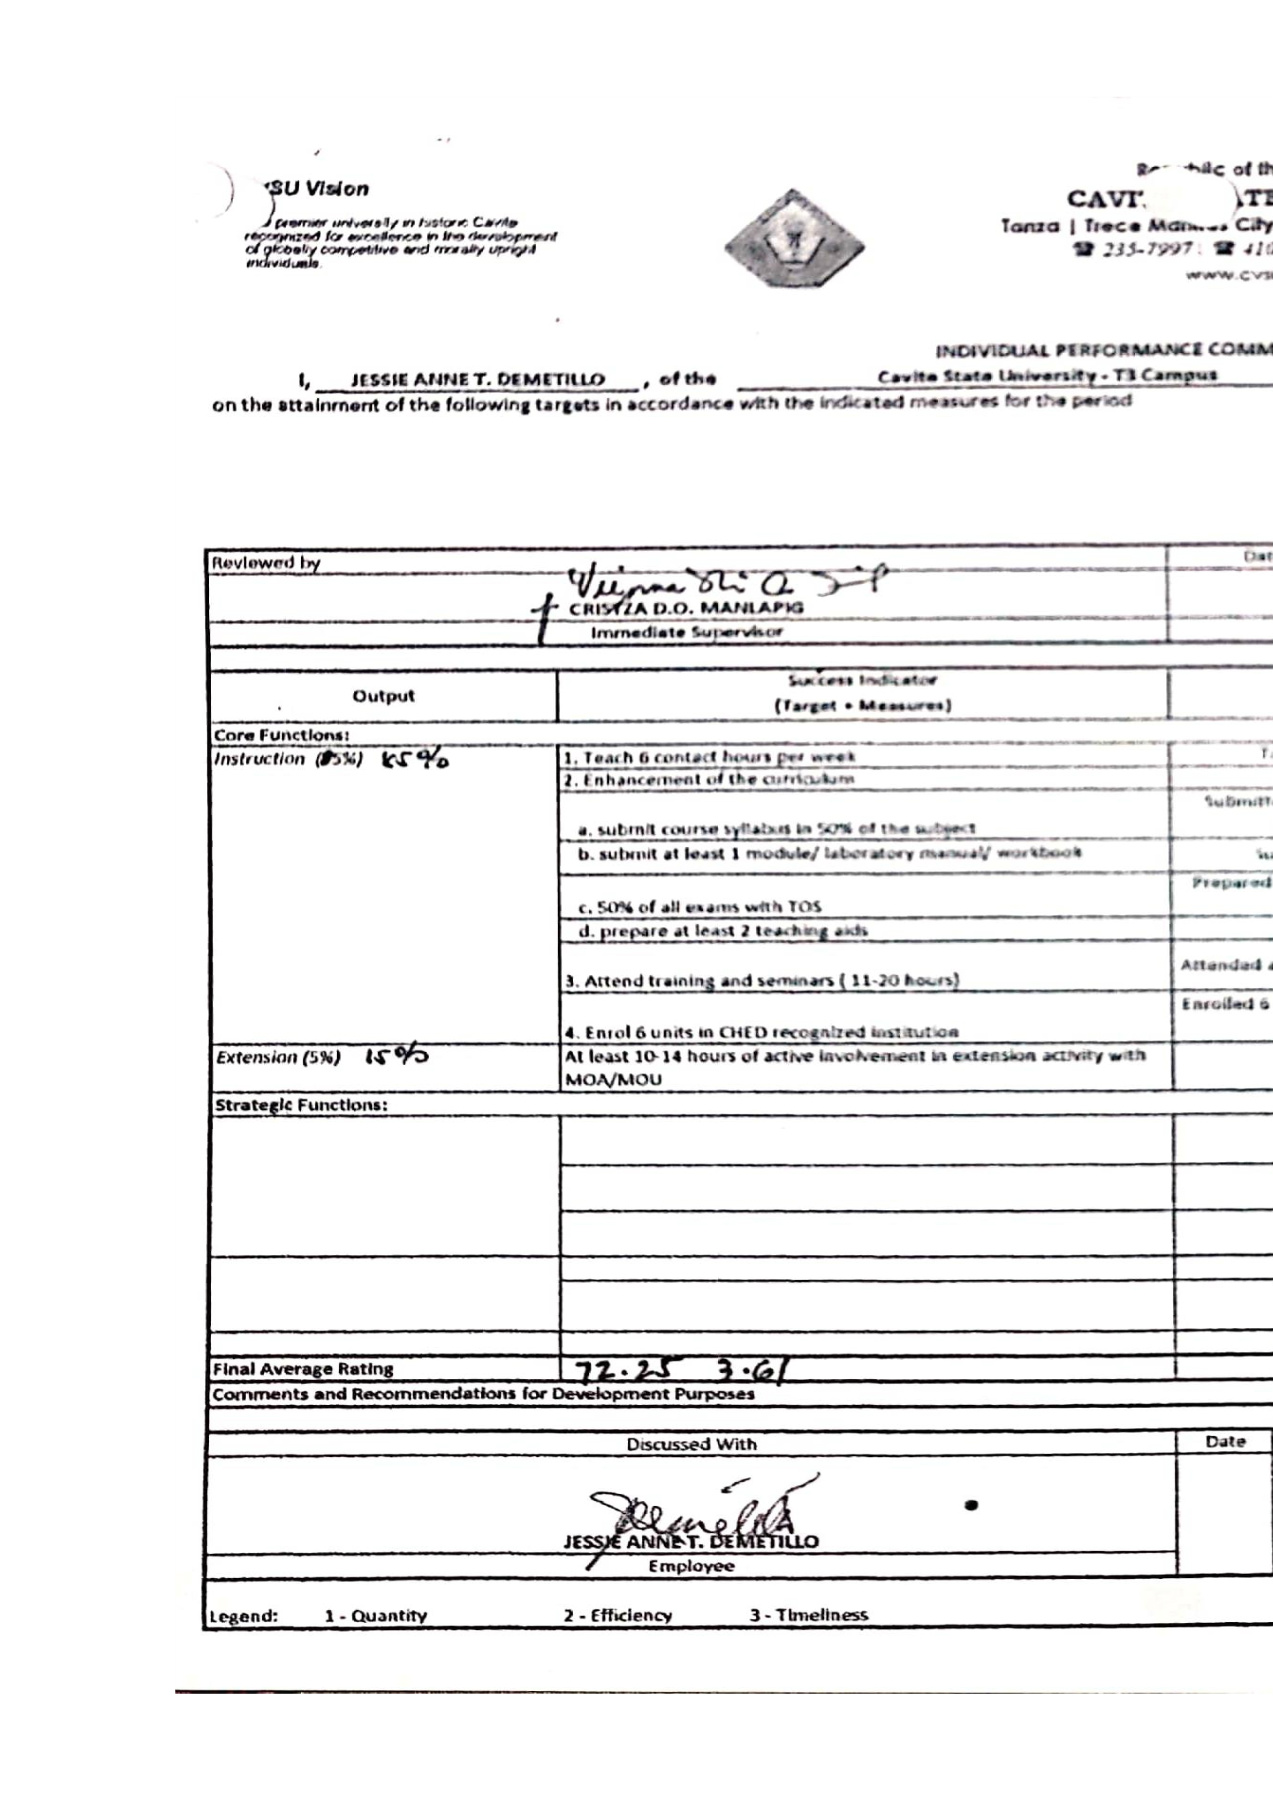 SU Vision
premier university in historic Cavite
recognized for excellence in the development
of globally competitive and morally upright
individuals.
of th
CAVI
Tanza | Trece City
☎ 235-7997: ☎ 410
www.cvs
INDIVIDUAL PERFORMANCE COMM
I, JESSIE ANNE T. DEMETILLO , of the Cavite State University - T3 Campus
on the attainment of the following targets in accordance with the indicated measures for the period
Reviewed by
CRISTZA D.O. MANLAPIG
Immediate Supervisor
Output
Success Indicator
(Target + Measures)
Core Functions:
Instruction ( 5%) 85%
1. Teach 6 contact hours per week
2. Enhancement of the curriculum
Submitt
a. submit course syllabus in 50% of the subject
b. submit at least 1 module/ laboratory manual/ workbook
Prepared
c. 50% of all exams with TOS
d. prepare at least 2 teaching aids
Attended
3. Attend training and seminars ( 11-20 hours)
Enrolled 6
4. Enrol 6 units in CHED recognized institution
Extension (5%) 15%
At least 10-14 hours of active involvement in extension activity with
MOA/MOU
Strategic Functions:
Final Average Rating 72.25 3.61
Comments and Recommendations for Development Purposes
Discussed With Date
JESSIE ANNE T. DEMETILLO
Employee
Legend: 1 - Quantity 2 - Efficiency 3 - Timeliness